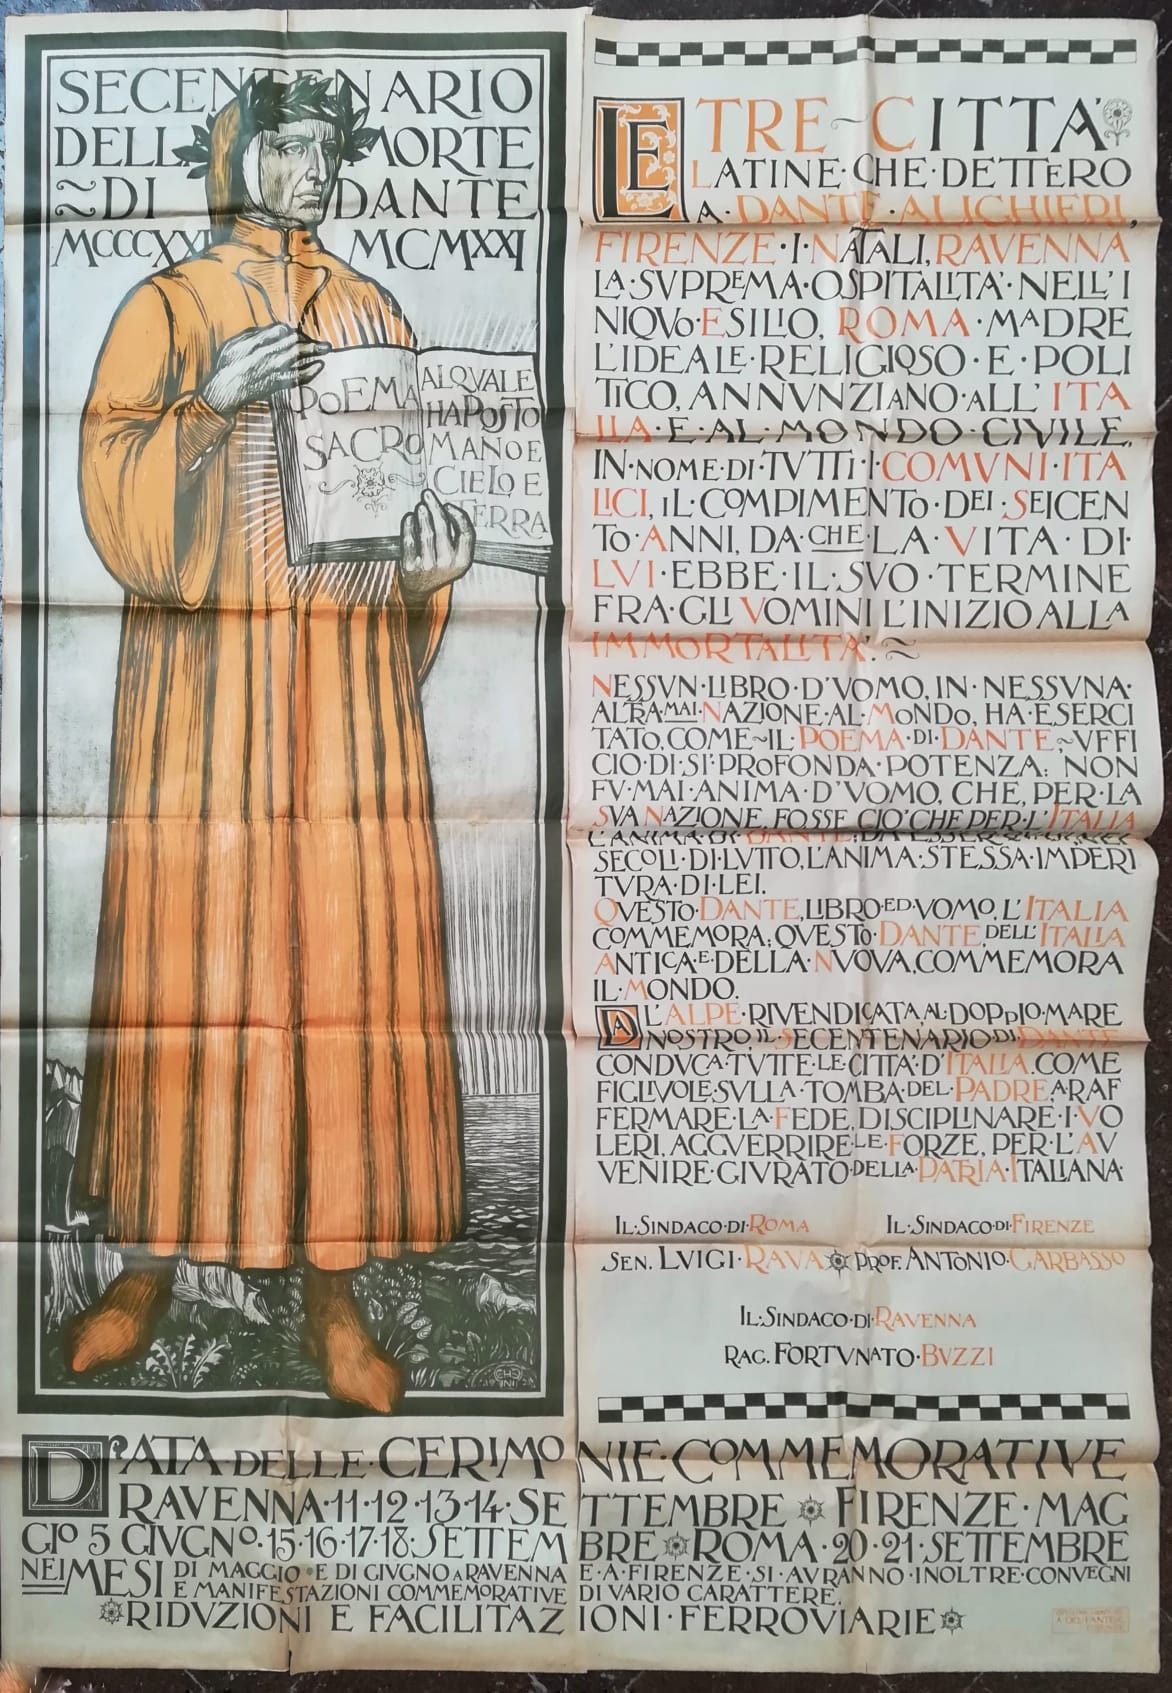 SECENTENARIO
DELLA MORTE
~DI DANTE
MCCCXXI MCMXXI
POEMA
SACRO
AL QVALE
HA POSTO
MANO E
CIELO E
TERRA
LE TRE~CITTÀ
LATINE·CHE·DETTERO
A·DANTE·ALIGHIERI,
FIRENZE·I·NATALI, RAVENNA
LA·SVPREMA·OSPITALITÀ·NELL'I
NIQVO·ESILIO, ROMA·MADRE
L'IDEALE·RELIGIOSO·E·POLI
TICO, ANNVNZIANO·ALL'ITA
LIA·E·AL·MONDO·CIVILE,
IN·NOME·DI·TVTTI·I·COMVNI·ITA
LICI, IL·COMPIMENTO·DEI·SEICEN
TO·ANNI, DA·CHE·LA·VITA·DI·
LVI·EBBE·IL·SVO·TERMINE
FRA·GLI VOMINI L'INIZIO ALLA
IMMORTALITA'.~
NESSVN·LIBRO·D'VOMO, IN·NESSVNA·
ALTRA·MAI·NAZIONE·AL·MONDO, HA·ESERCI
TATO, COME~IL·POEMA·DI·DANTE,~VFFI
CIO·DI·SI'·PROFONDA·POTENZA: NON
FV·MAI·ANIMA·D'VOMO, CHE, PER·LA
SVA NAZIONE, FOSSE CIO' CHE PER·L'ITALIA
L'ANIMA·DI·DANTE: DA ESSER
SECOLI·DI·LVTTO, L'ANIMA·STESSA·IMPERI
TVRA·DI·LEI.
QVESTO·DANTE, LIBRO·ED·VOMO, L'ITALIA
COMMEMORA; QVESTO·DANTE, DELL'ITALIA
ANTICA·E·DELLA·NVOVA, COMMEMORA
IL·MONDO.
DAL'ALPE·RIVENDICATA, AL·DOPPIO·MARE
NOSTRO, IL·SECENTENARIO·DI·DANTE
CONDVCA·TVTTE·LE·CITTÀ·D'ITALIA, COME
FIGLIVOLE·SVLLA·TOMBA·DEL·PADRE, A·RAF
FERMARE·LA·FEDE, DISCIPLINARE·I·VO
LERI, AGGVERRIRE·LE·FORZE, PER·L'AV
VENIRE·GIVRATO·DELLA·PATRIA·ITALIANA
IL·SINDACO·DI·ROMA IL·SINDACO·DI·FIRENZE
SEN. LVIGI·RAVA PROF. ANTONIO·GARBASSO
IL·SINDACO·DI·RAVENNA
RAG. FORTVNATO·BVZZI
DATA·DELLE·CERIMONIE·COMMEMORATIVE
RAVENNA·11·12·13·14·SETTEMBRE FIRENZE·MAG
GIO 5 GIVGNO·15·16·17·18·SETTEMBRE ROMA·20·21·SETTEMBRE
NEI MESI DI MAGGIO·E DI GIVGNO A RAVENNA E·A·FIRENZE·SI·AVRANNO·INOLTRE·CONVEGNI
E MANIFESTAZIONI COMMEMORATIVE DI VARIO CARATTERE.
RIDVZIONI E FACILITAZIONI·FERROVIARIE